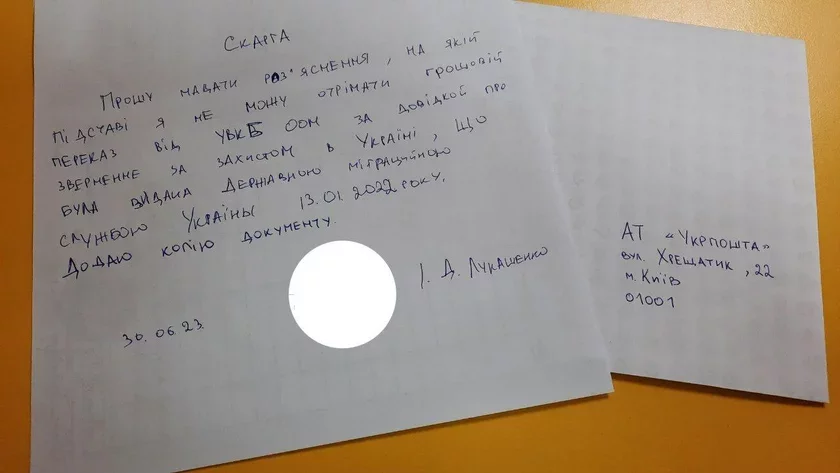 Скарга
Прошу надати роз'яснення, на якій
підставі я не можу отрімати грошовій
переказ від УВКБ ООМ за довідкой про
зверненне за захистом в Україні, що
була видана Державною міграційного
службою Украіны 13.01.2022 року.
Додаю копію документу.
І. Д. Лукашенко
30.06.23.
АТ «Укрпошта»
вул. Хрещатик, 22
м. Київ
01001